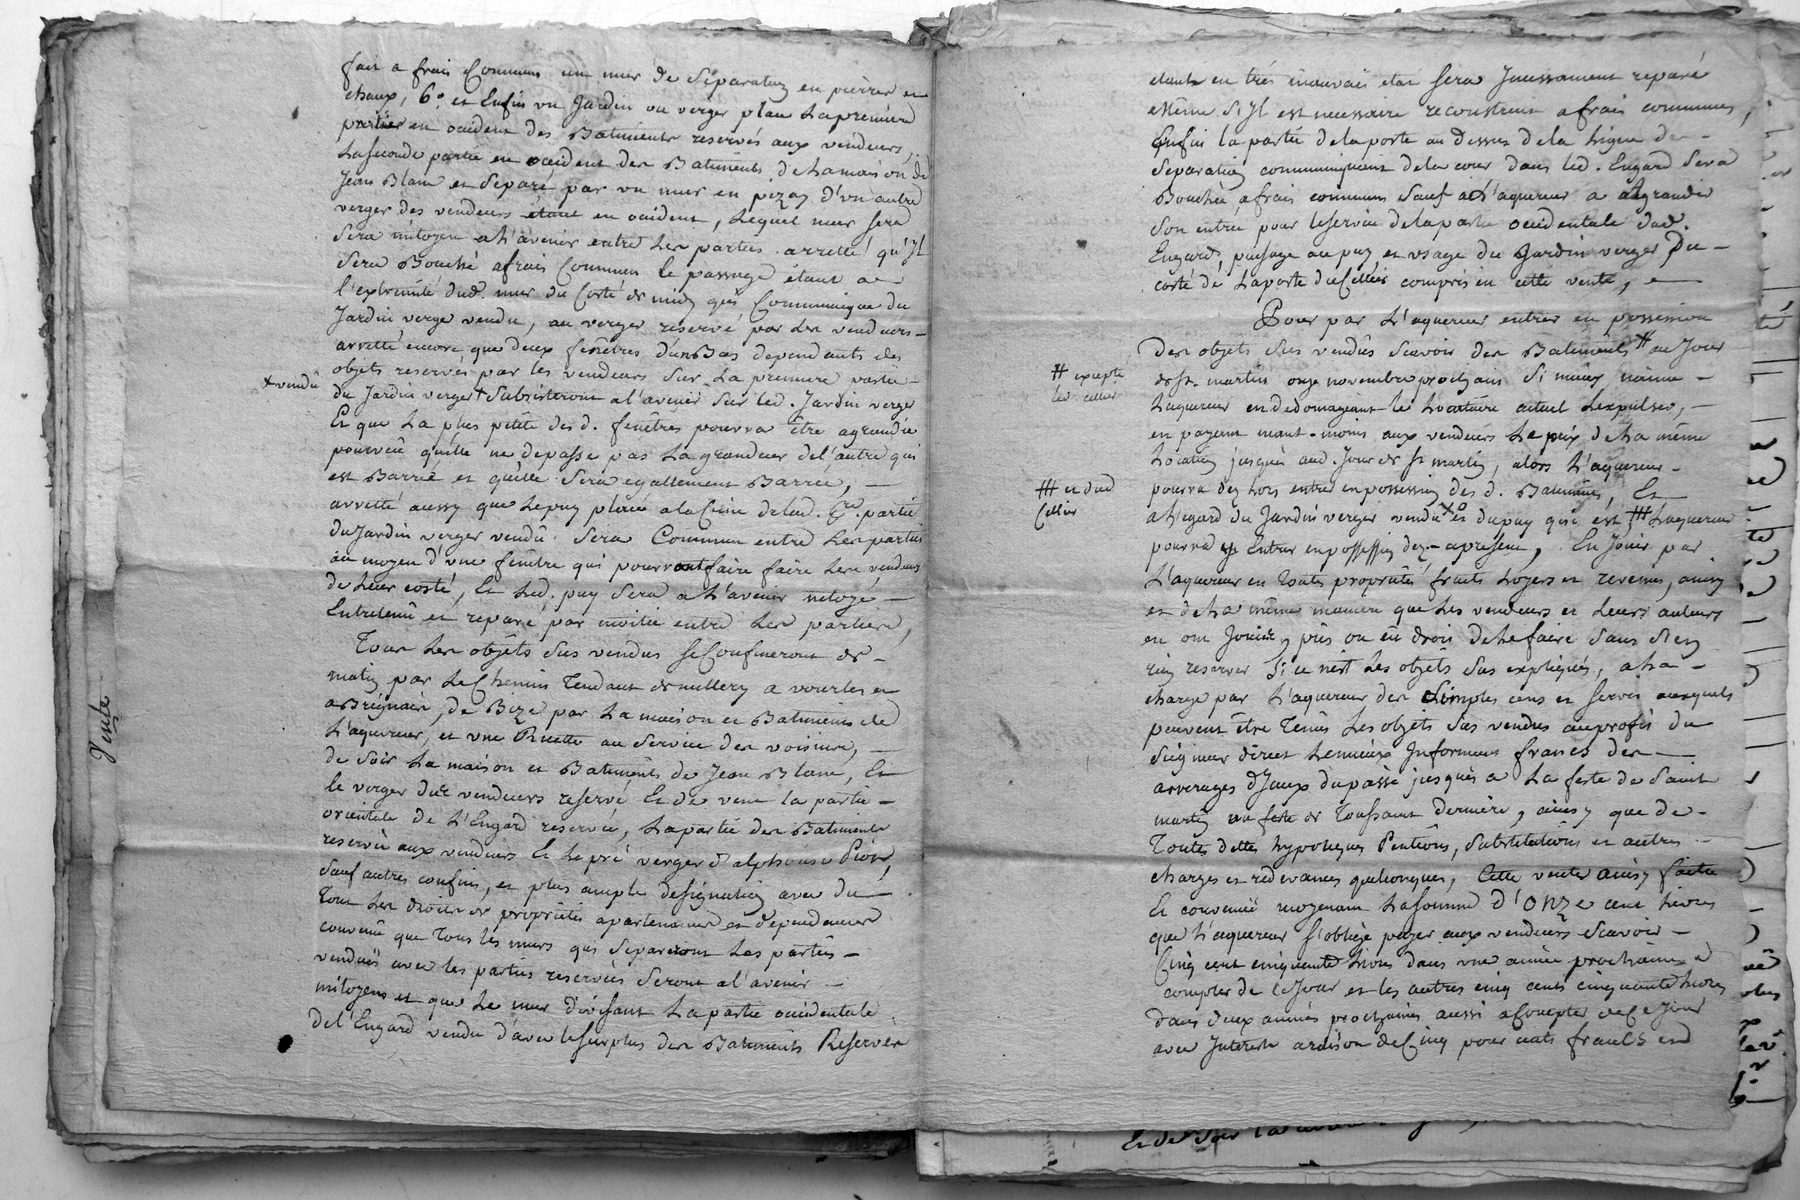 fait a frais Communs un mur de Séparation en pierres et
chaux, 6° et Enfin un Jardin ou verger plan La première
partie en occident des Batiments reservés aux vendeurs,
La seconde partie en occident des Batiments de La maison de
Jean Blanc et Separé par un mur en pizay d'un autre
verger des vendeurs étant en occident, Lequel mur sera
Sera mitoyen a L'avenir entre Les parties. arretté qu'Jl
Sera Bouché a frais Communs le passage étant a
l'extremité dud. mur du Costé de midy qui Communique du
Jardin verger vendu, au verger reservé par Les vendeurs
arretté encore que deux fenêtres d'un Bas dependants des
objets reservés par les vendeurs Sur La première partie
+ vendu
du Jardin verger + Subsisteront a l'avenir Sur led. Jardin verger
Et que La plus petite desd. fenêtres pourra être agrandie
pourvû qu'elle ne depasse pas La grandeur de l'autre qui
est Barrée et qu'elle Sera egallement Barrée,
arretté aussy que Le puy placé a la Cime de lad. partie
du Jardin verger vendu Sera Commun entre Les parties
au moyen d'une fenêtre qui pourront faire faire Les vendeurs
de Leur costé, Et Led. puy Sera a L'avenir netoyé
Entretenu et reparé par moitié entre Les parties,
Tous Les objéts Sus vendus Se Confineront de
matin par Le Chemin Tendant de millery a vourles et
a Brignais, de Bize par La maison et Batiments de
L'aquereur, et une Ruette au Service des voisins,
de Soir La maison et Batiments de Jean Blanc, Et
le verger des vendeurs reservé Et de vent la partie
orientale de L'Engard reservée, La partie des Batiments
reservée aux vendeurs Et Le pré verger d'alphonse
Sauf autres confins, et plus ample designation avec du
Tout Les droits de proprietés apartenances et dependances
convenu que Tous les murs qui Separeront Les parties
vendues avec les parties reservées Seront a l'avenir
mitoyens et que Le mur divisant La partie occidentale
de l'Engard vendu d'avec le surplus des Batiments Reservés
Vente
étant en très mauvais état Sera Jncessament reparé
même S'Jl est necessaire reconstruit a frais communs,
Enfin la partie de la porte au dessus de la Ligne de
Separation communiquant de la cour dans led. Engard Sera
Bouchée a frais communs Sauf a L'aquereur a agrandir
Son entrée pour le service de la partie occidentale dud.
Engard, puisage au puy et usage du Jardin verger Du
costé de La porte du Cellier compris en cette vente,
Pour par L'aquereur entrer en possession
Des objets Sus vendus Scavoir des Batiments # au Jour
# excepté
led. cellier
de St. martin onze novembre prochain Si mieux n'aime
Laquereur en dedomageant le Locataire actuel Lexpulser,
en payant neant-moins aux vendeurs Le prix de La même
Location jusques aud. Jour de St martin, alors L'aquereur
pourra dez Lors entrer en possession desd. Batiments, Et
a L'egard du Jardin verger vendu du puy qui est ## Laquereur
## et dud
Cellier
pourra Entrer en possession dez-apresent, En Jouir par
L'aquereur en Toutes proprietés fruits Loyers et revenus, ainsy
et de La même maniere que Les vendeurs et Leurs auteurs
en ont Joui, pûs ou êu droit de Le faire Sans S'en
rien reserver Si ce n'est Les objets Sus expliqués, a La
charge par L'aquereur des Simples cens et Servis auxquels
peuvent être Tenus Les objets Sus vendus au profit du
Seigneur direct Le mieux Jnformant francs des
arrerages d'Jceux du passé jusques a La feste de Saint
martin ou feste de Toussaint derniere, ainsy que de
Toutes dettes hypoteques Pentions, Substitutions et autres
charges et redevances quelconques, Cette vente ainsy faitte
Et convenüe moyenant La somme d'onze cent Livres
que L'aquereur S'oblige payer aux vendeurs Scavoir
Cinq cent cinquante Livres dans une année prochaine a
compter de ce Jour et les autres cinq cents cinquante Livres
dans deux années prochaines aussi a Compter de Ce Jour
avec Jnterets a raison de Cinq pour cents francs